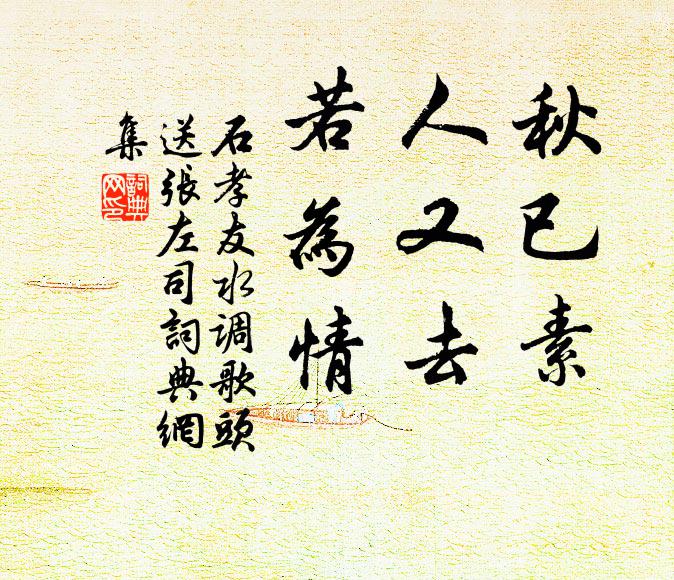 秋已素
人又去
若為情
石孝友水调歌頭
送張左司詞典網
集
詞典
网印